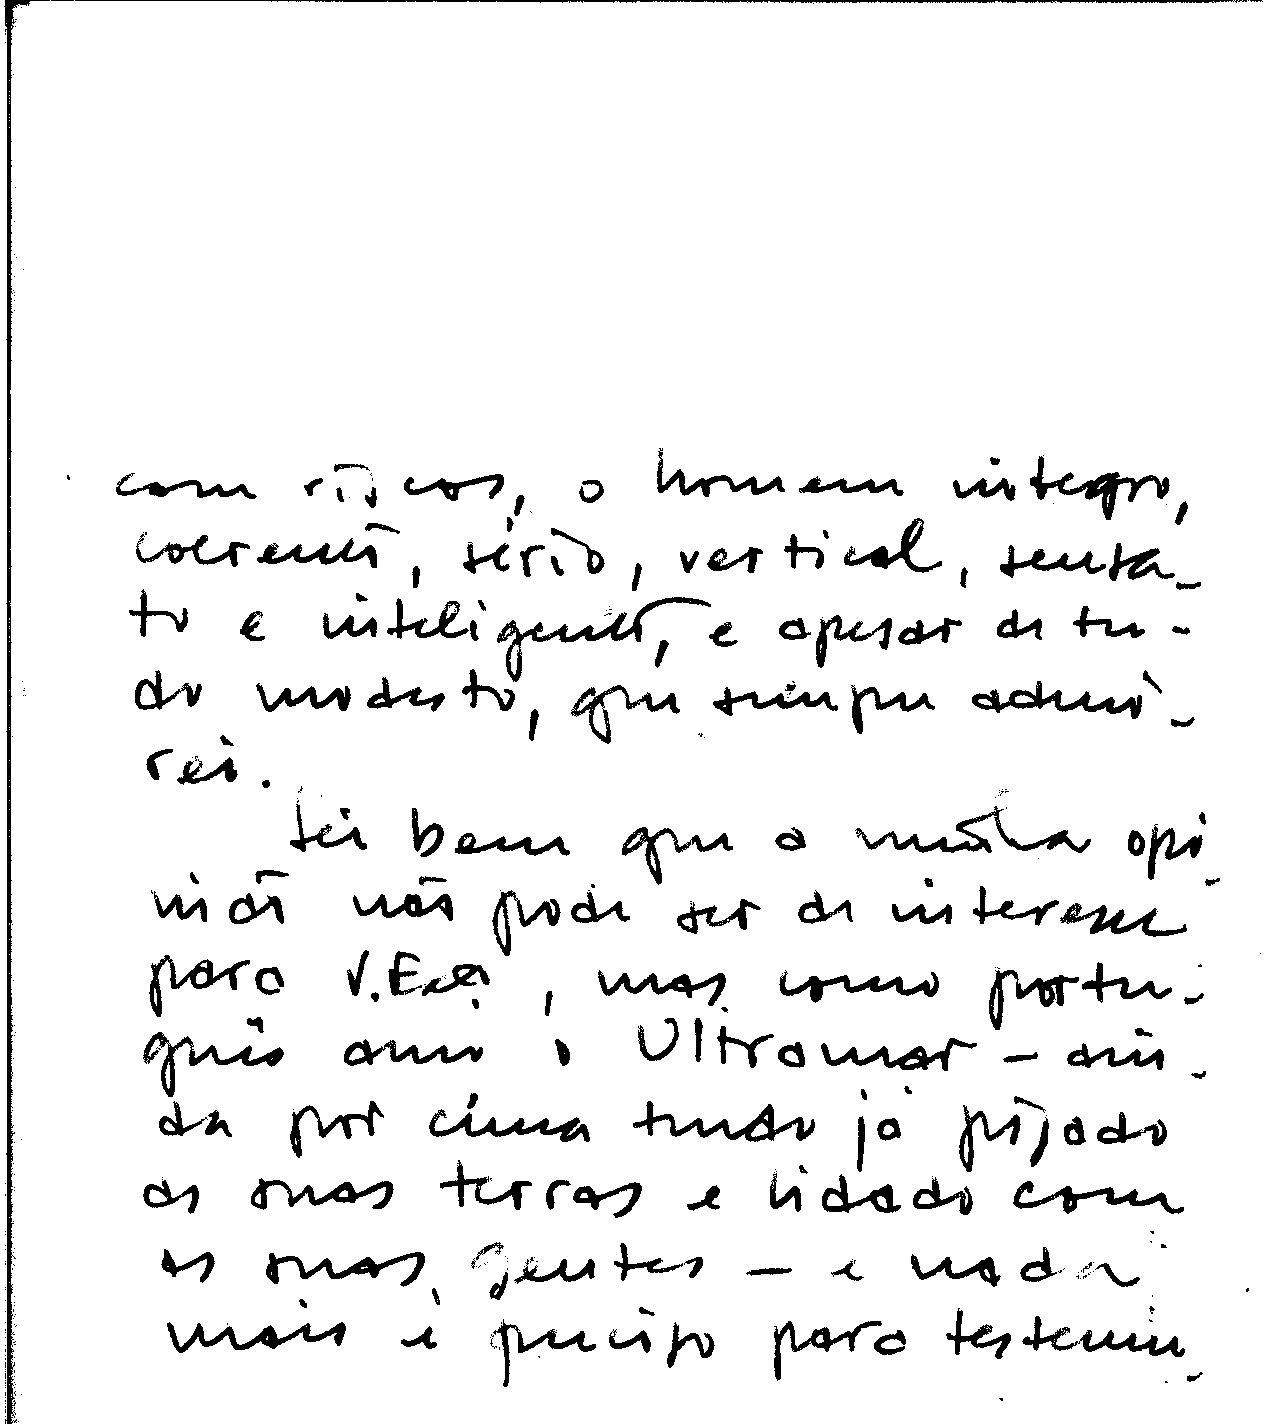 com riscos, o homem integro,
coerente, sério, vertical, sensa-
to e inteligente, e apesar de tu-
do modesto, que sempre admi-
rei.
Sei bem que a minha opi-
nião não pode ser de interesse
para V. Exª, mas como portu-
guês amo o Ultramar - ain-
da por cima tendo já pisado
as suas terras e lidado com
as suas gentes - e nada
mais é preciso para testemu-